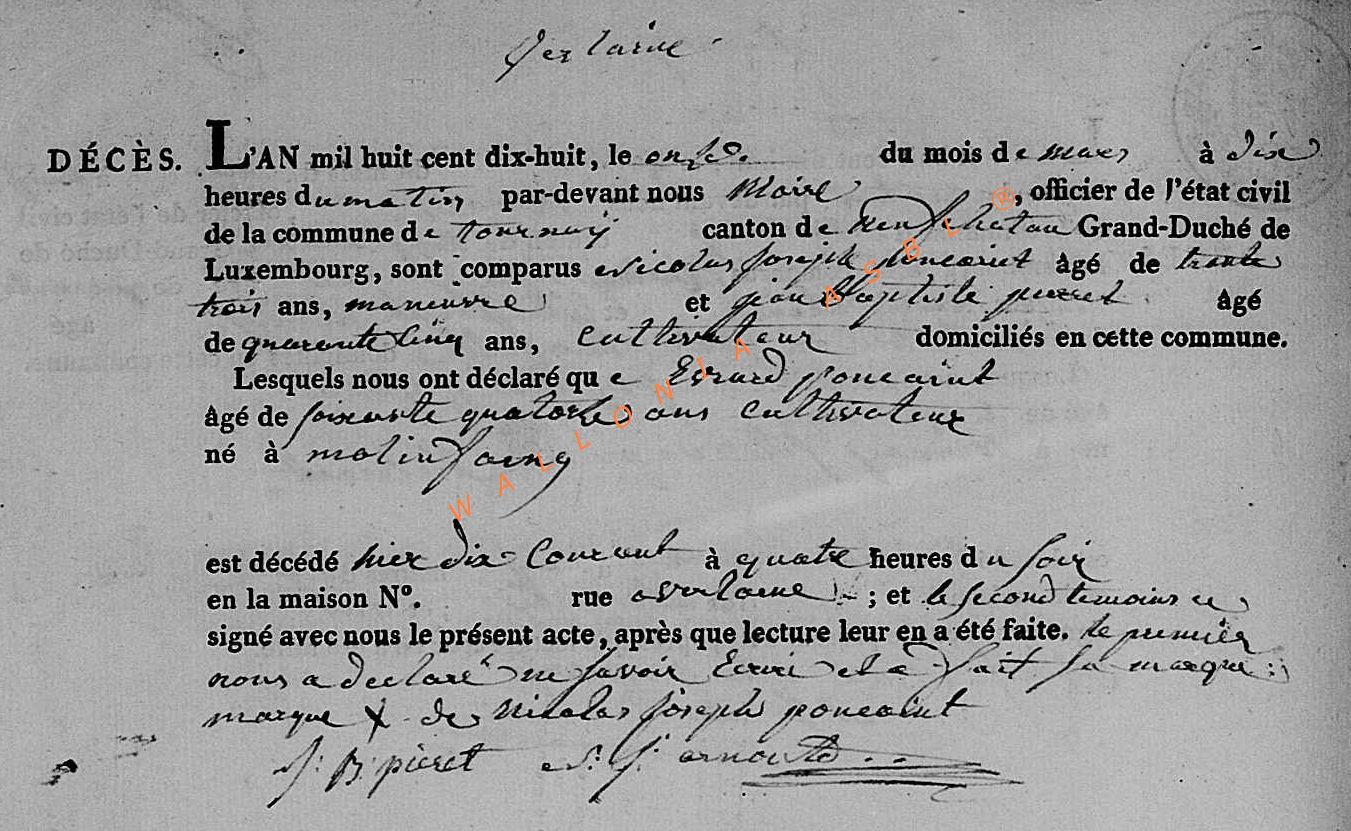 Verlaine
DÉCÈS. L'AN mil huit cent dix-huit, le onze du mois de mars à dix
heures du matin par-devant nous Maire, officier de l'état civil
de la commune de tournay canton de Neufchateau Grand-Duché de
Luxembourg, sont comparus Nicolas joseph poncaint âgé de trente
trois ans, maneuvre et jean Baptiste pierret âgé
de quarante cinq ans, cultivateur domiciliés en cette commune.
Lesquels nous ont déclaré que Evrard poncaint
âgé de soixante quatorze ans cultivateur
né à molinfaing
est décédé hier dix Courant à quatre heures du soir
en la maison N°. rue a verlaine ; et le second temoins a
signé avec nous le présent acte, après que lecture leur en a été faite. le premier
nous a declaré ne savoir Ecrire et a fait sa marque :
marque X de Nicolas joseph poncaint
J: B: pieret J: arnould
WALLONIA ASBL ®